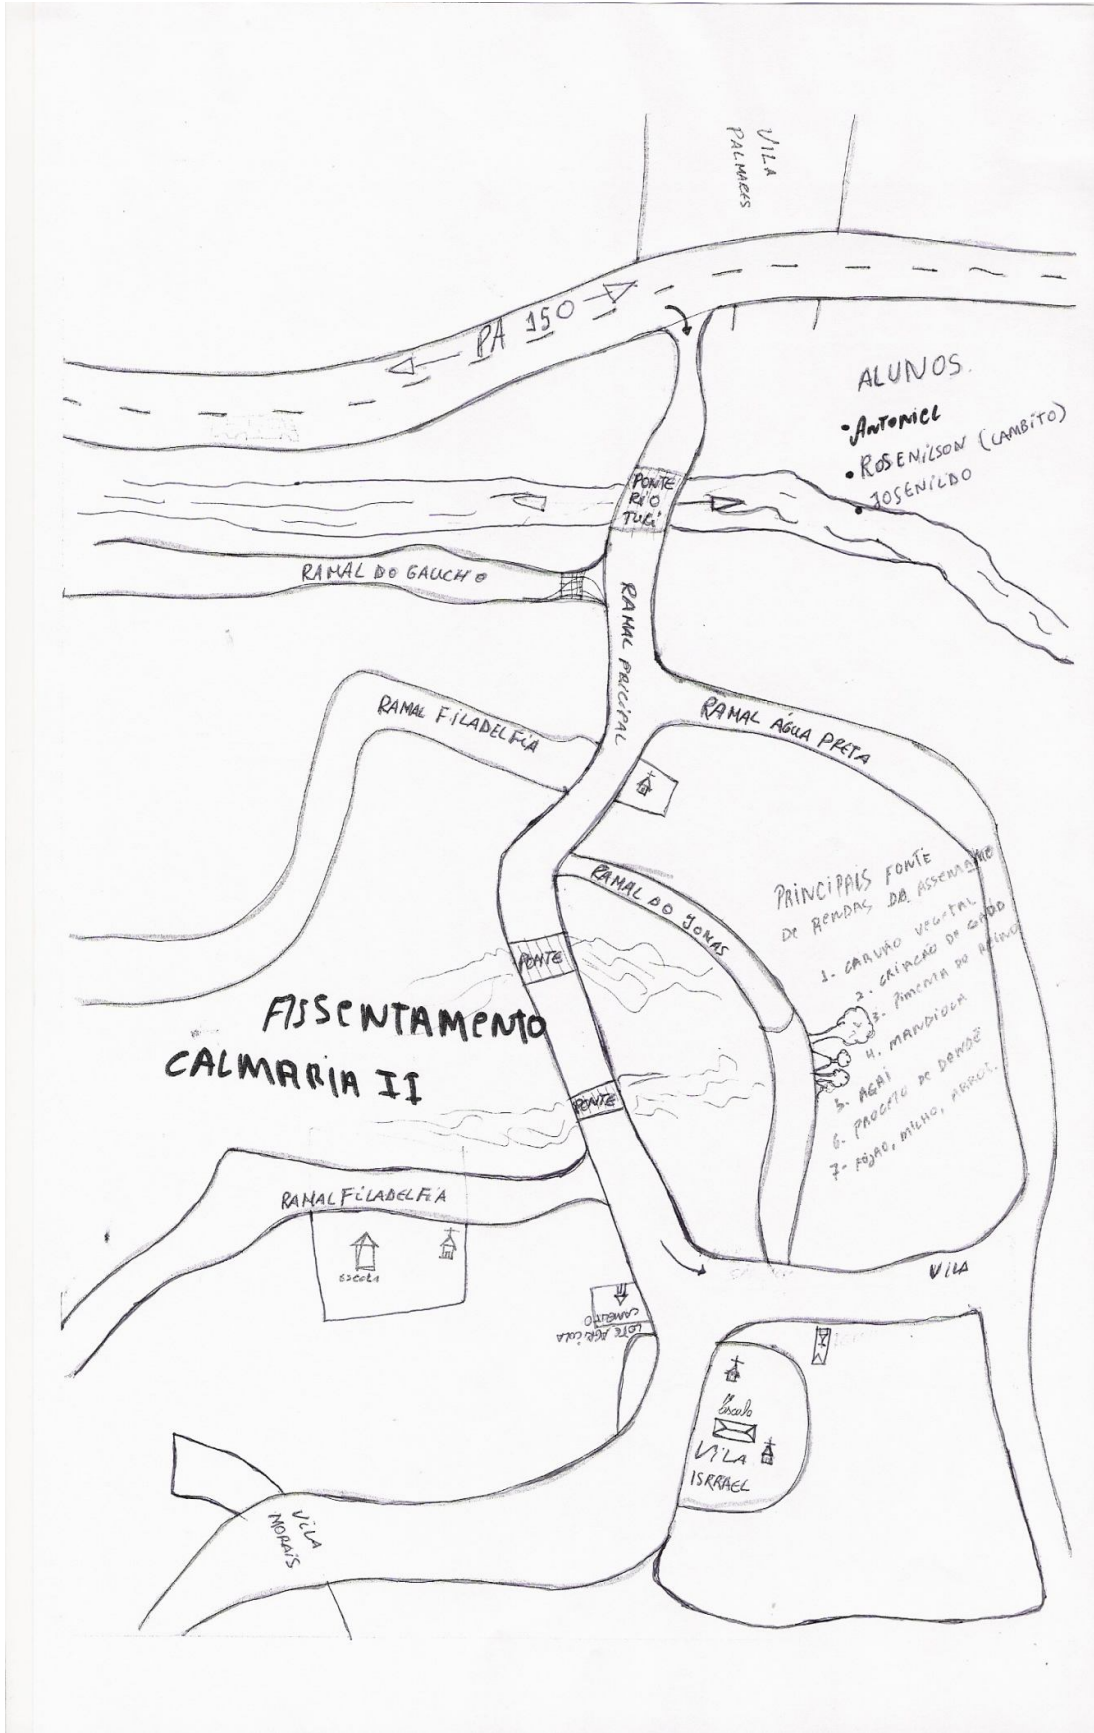 VILA
PALMARES
PA 150
ALUNOS.
• ANTONIEL
• ROSENILSON (CAMBITO)
• JOSENILDO
PONTE
RIO
TURI
RAMAL DO GAUCHO
RAMAL PRICIPAL
RAMAL FILADELFIA
RAMAL ÁGUA PRETA
RAMAL DO JONAS
PRINCIPAIS FONTE
DE RENDAS DO
1. CARVÃO VEGETAL
2. CRIACÃO DE GADO
3. PIMENTA DO REINO
4. MANDIOCA
5. AÇAI
6. PROCETO DE DENDÊ
7- FEJÃO, MILHO, ARROZ.
PONTE
ASSENTAMENTO
CALMARIA II
PONTE
RAMAL FILADELFIA
ESCOLA
CAMBITO
LOTE AGRICOLA
VILA
Escola
VILA
ISRRAEL
VILA
MORAIS